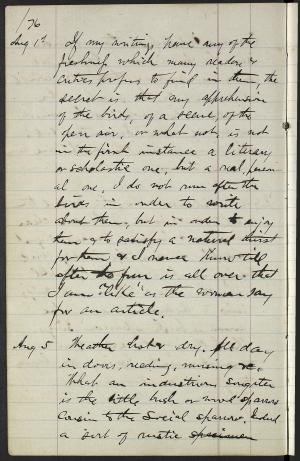 176
Aug 1st If my writings have any of the
freshness which many readers &
critics profess to find in them, the
secret is that my apprehension
of the birds, of a scene, of the
open air, or what not, is not
in the first instance a literary
or scholastic one, but a real person
al one. I do not run after the
birds in order to write
about them, but in order to enjoy
them & to satisfy a natural thirst
for them, & I never know till
after the fun is all over that
I am "like" as the woman say
for an article.
Aug 5 Weather hot & dry. All day
in doors, reading, musing &c.
What an industrious songster
is the little bush or wood sparrow
Cousin to the Social sparrow. Indeed
a sort of rustic specimen